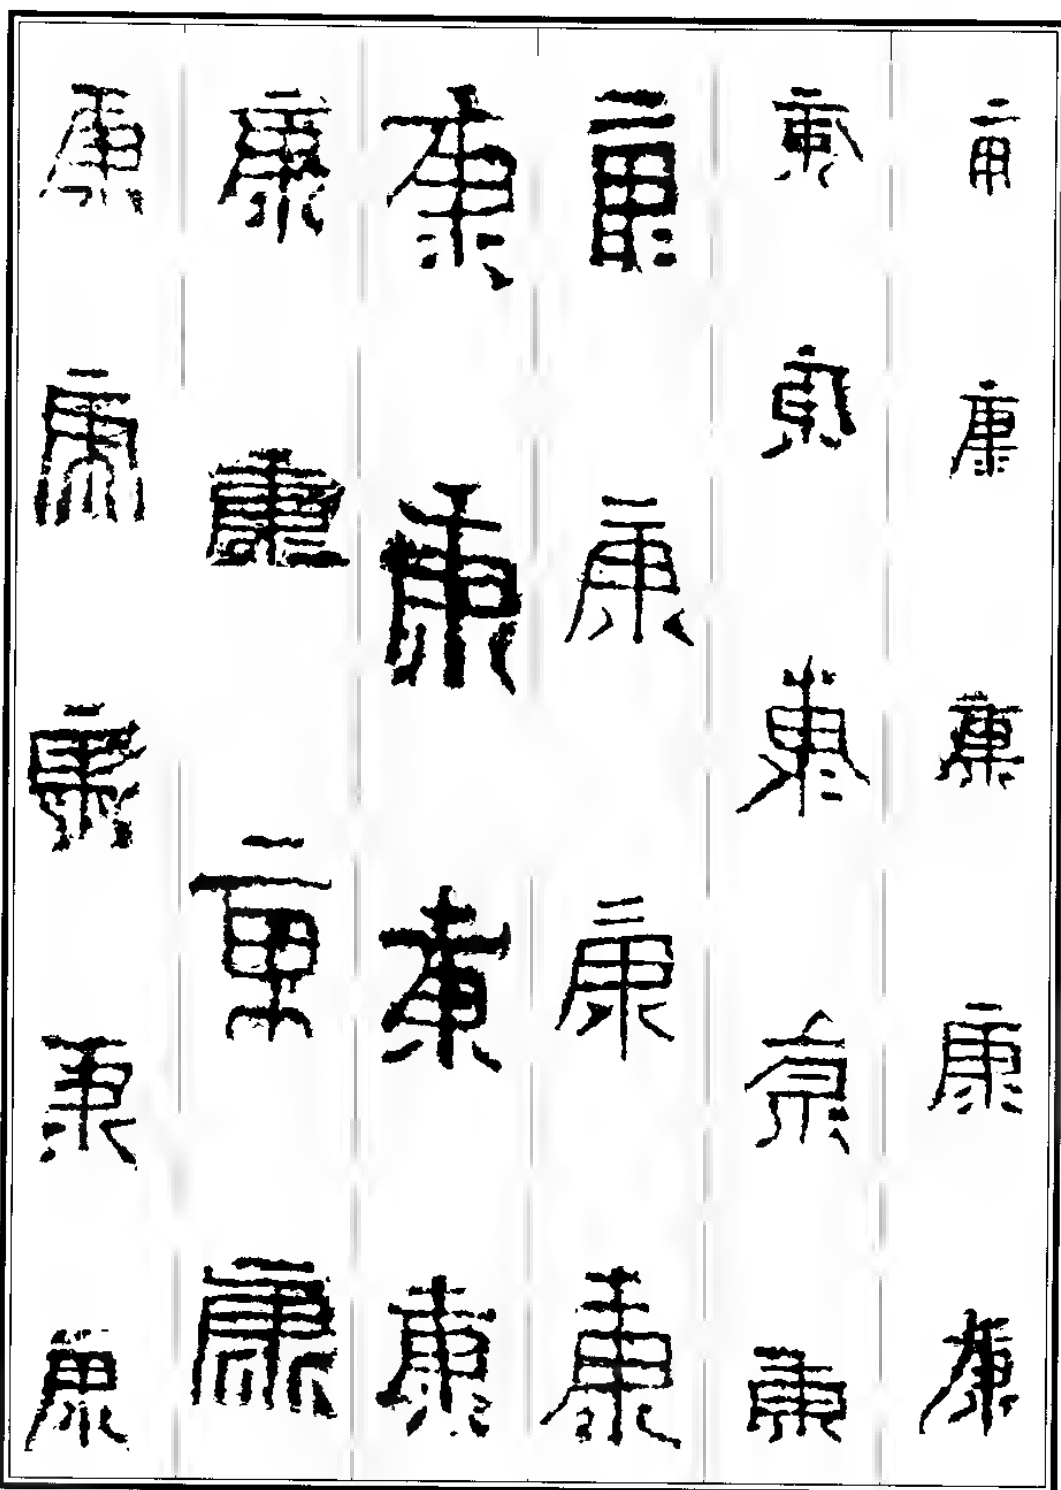 康康康康康
康康康康康
康康康康
康康康康
康康康康
康康康康康